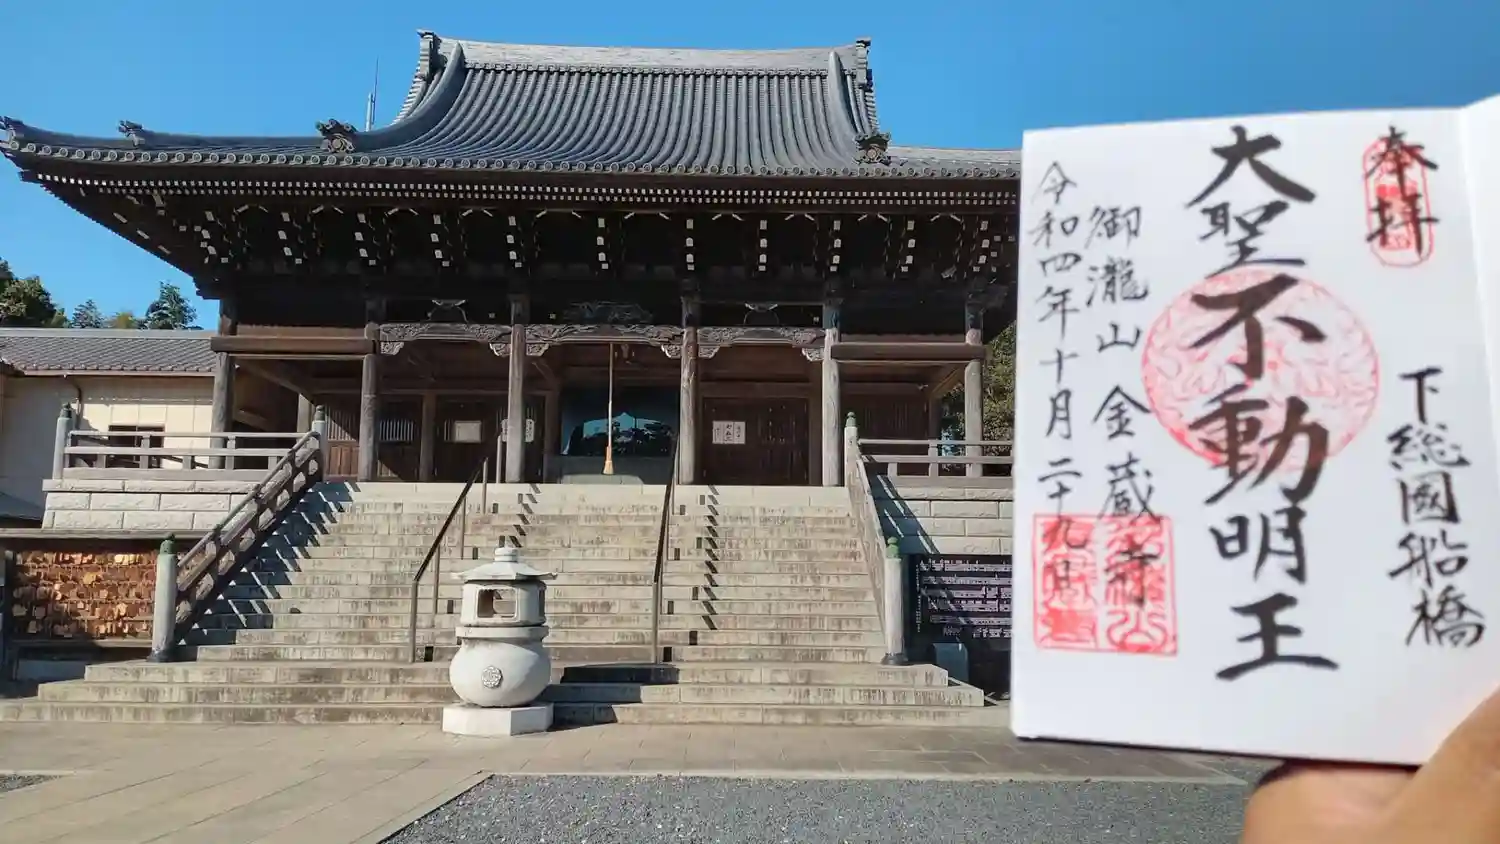 奉拝
下総國船橋
大聖不動明王
御瀧山金蔵寺
令和四年十月二十九日